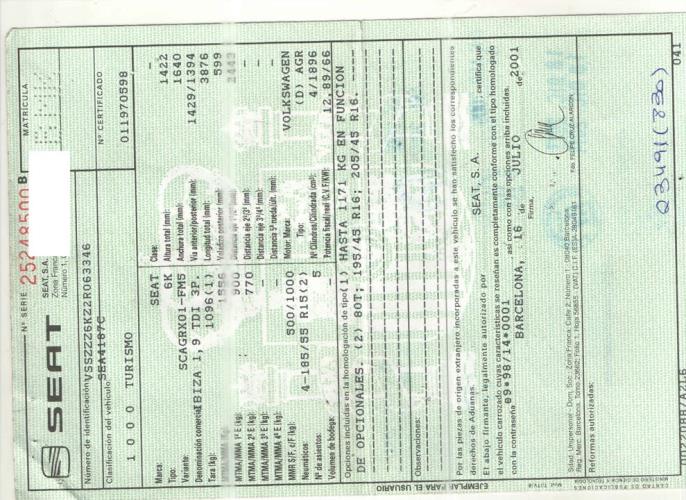 SEAT
Nº SERIE 25248500 B
SEAT, S.A.
Zona Franca
Número 1,
MATRICULA
Número de identificación VSSZZZ6KZ2R063346
SEA4187C
Clasificación del vehículo:
1000 TURISMO
Nº CERTIFICADO
011970598
Marca: SEAT
Tipo: 6K
Variante: SCAGRX01-FM5
Denominación comercial IBIZA 1,9 TDI 3P.
Tara (kg): 1096(1)
1556
MTMA/MMA 1º E (kg): 900
MTMA/MMA 2º E (kg): 770
MTMA/MMA 3º E (kg): —
MTMA/MMA 4º E (kg): —
MMR S/F, c/F (kg): 500/1000
Neumáticos: 4-185/55 R15(2)
Nº de asientos: 5
Volumen de bodega:
Clase: —
Altura total (mm): 1422
Anchura total (mm): 1640
Vía anterior/posterior (mm): 1429/1394
Longitud total (mm): 3876
Voladizo posterior (mm): 599
2443
Distancia eje 2º/3º (mm): —
Distancia eje 3º/4º (mm): —
Motor: Marca: VOLKSWAGEN
Tipo: (D) AGR
Nº Cilindros/Cilindrada (cm³): 4/1896
Potencia fiscal/real (C.V.F/KW): 12,89/66
Opciones incluidas en la homologación de tipo (1) HASTA 1171 KG EN FUNCION
DE OPCIONALES. (2) 80T; 195/45 R16; 205/45 R16.
Observaciones:
Por las piezas de origen extranjero incorporadas a este vehículo se han satisfecho los correspondientes
derechos de Aduanas.
El abajo firmante, legalmente autorizado por SEAT, S. A. , certifica que
el vehículo carrozado cuyas características se reseñan es completamente conforme con el tipo homologado
con la contraseña e9*98/14*0001 así como con las opciones arriba incluidas.
BARCELONA, 16 de JULIO de 2001
Firma,
Fdo. FELIPE CRUZ ALARCON
Reformas autorizadas:
EJEMPLAR PARA EL USUARIO
041